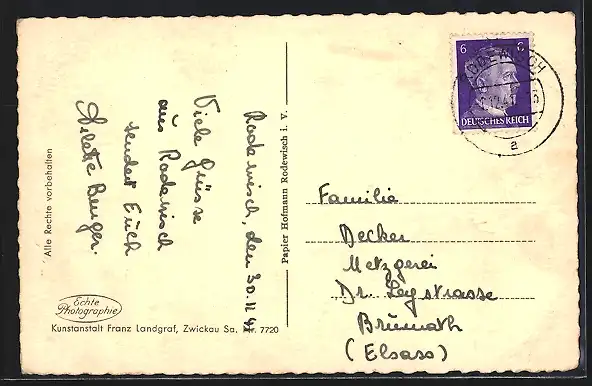 Rodewisch, den 30.12.41
Viele Grüsse
aus Rodewisch
sendet Euch
Arlette Burger.
Alle Rechte vorbehalten
Echte
Photographie
Kunstanstalt Franz Landgraf, Zwickau Sa. Nr. 7720
Papier Hofmann Rodewisch i. V.
6 6
DEUTSCHES REICH
a
Familie
Decker
Metzgerei
Dr. Leystrasse
Brumath
(Elsass)